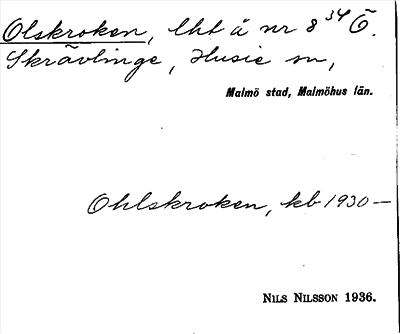 Olskroken, lht å nr 8³⁴ Ö.
Skrävlinge, Husie sn,
Malmö stad, Malmöhus län.
Ohlskroken, kb 1930—
NILS NILSSON 1936.